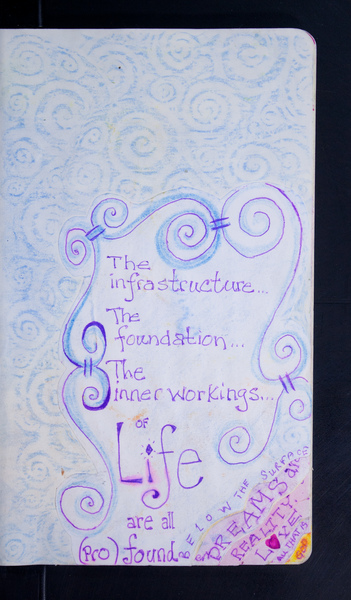 The
infrastructure...
The
foundation...
The
inner workings...
OF
Life
are all
(Pro) found
BELOW THE SURFACE
DREAMS
REALITY
LOVE
ALL THAT IS
GOD